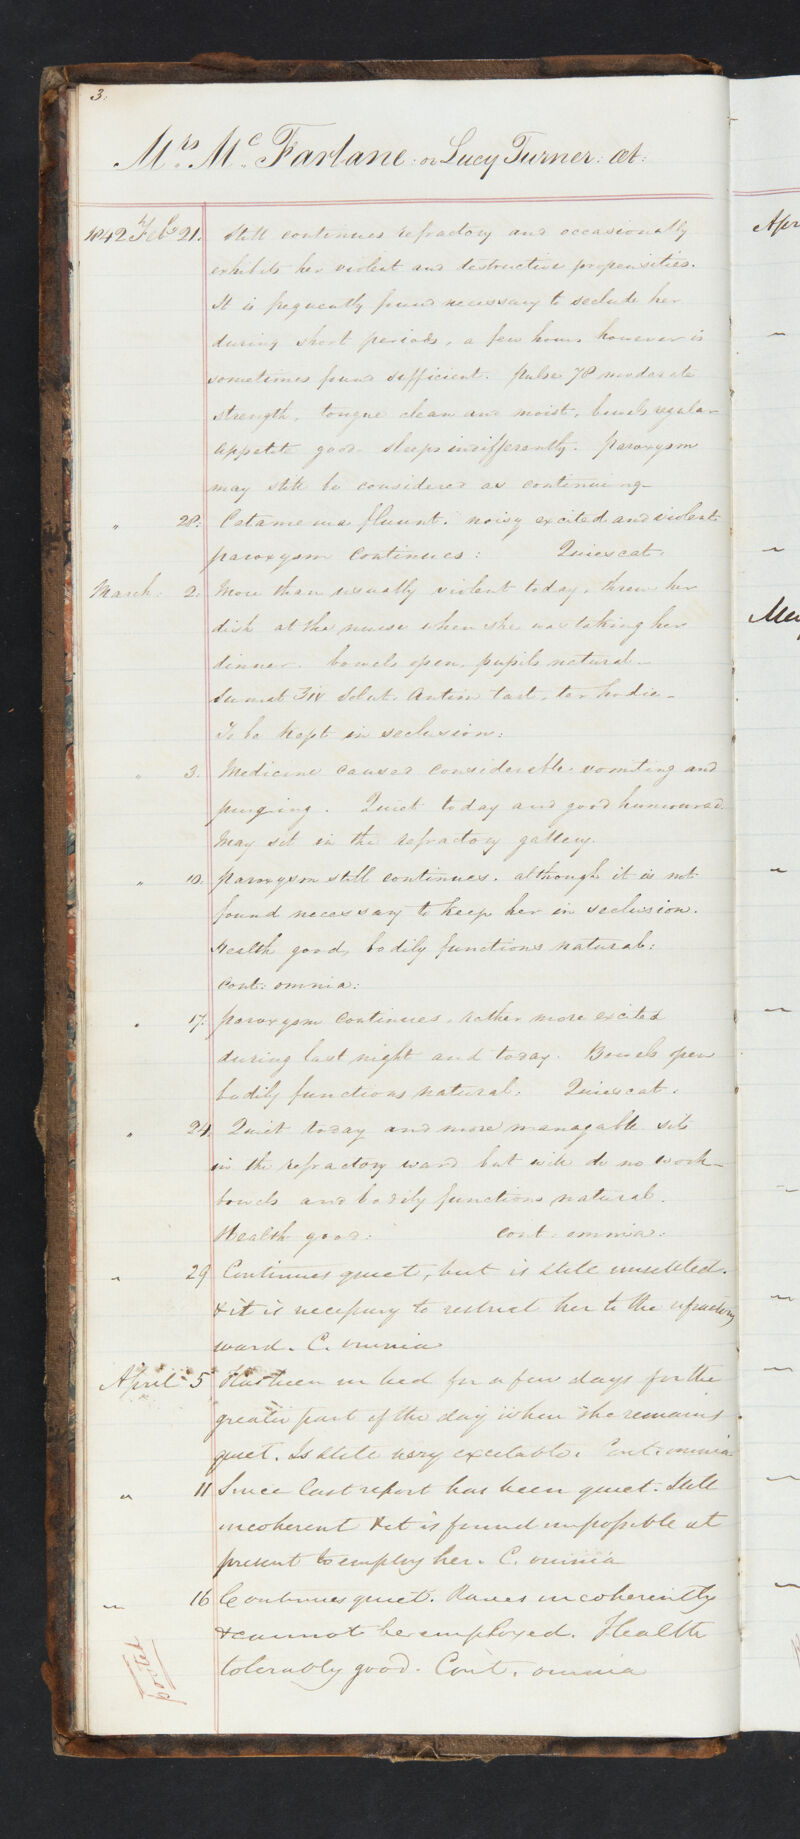 3.
Mrs. Mc. Farlane. or Lucy Turner: æt:
1842 Feby. 21. Still continues refractory and occasionally
exhibits her violent and destructive propensities.
It is frequently found necessary to seclude her
during short periods, a few hours however is
sometimes found sufficient. pulse 78 moderate
strength, tongue clean and moist, bowels regular
appetite good sleeps indifferently. paroxysm
may still be considered as continuing
" 28. Catamenia fluunt. noisy excited and violent
paroxysm continues: Quiescat.
March. 2. More than usually violent today, threw her
dish at the nurse when she was taking her
dinner. bowels open, pupils natural.
Sumat ʒiv Solut. Antim tart. ter hodie.
To be kept in seclusion:
" 3. Medicine caused considerable vomiting and
purging. Quiet today and good humoured.
May sit in the refractory gallery.
" 10. paroxysm still continues. although it is not
found necessary to keep her in seclusion.
Health good, bodily functions natural:
Cont: omnia:
" 17. paroxysm continues. rather more excited
during last night and today. Bowels open
bodily functions natural. Quiescat.
" 24. Quiet today and more managable sits
in the refractory ward but will do no work
bowels and bodily functions natural.
Health good. Cont. omnia.
" 29 Continues quiet, but is still unsettled.
& it is necessary to restrict her to the refractory
ward. C. omnia
April 5 Has been in bed for a few days for the
greater part of the day when she remains
quiet. Is still very excitable. Cont. omnia
" 11 Since last report has been quiet. Still
incoherent & it is found impossible at
present to employ her. C. omnia
" 16 Continues quiet. Raves incoherently
& cannot be employed. Health
tolerably good. Cont. omnia
posted
Apr